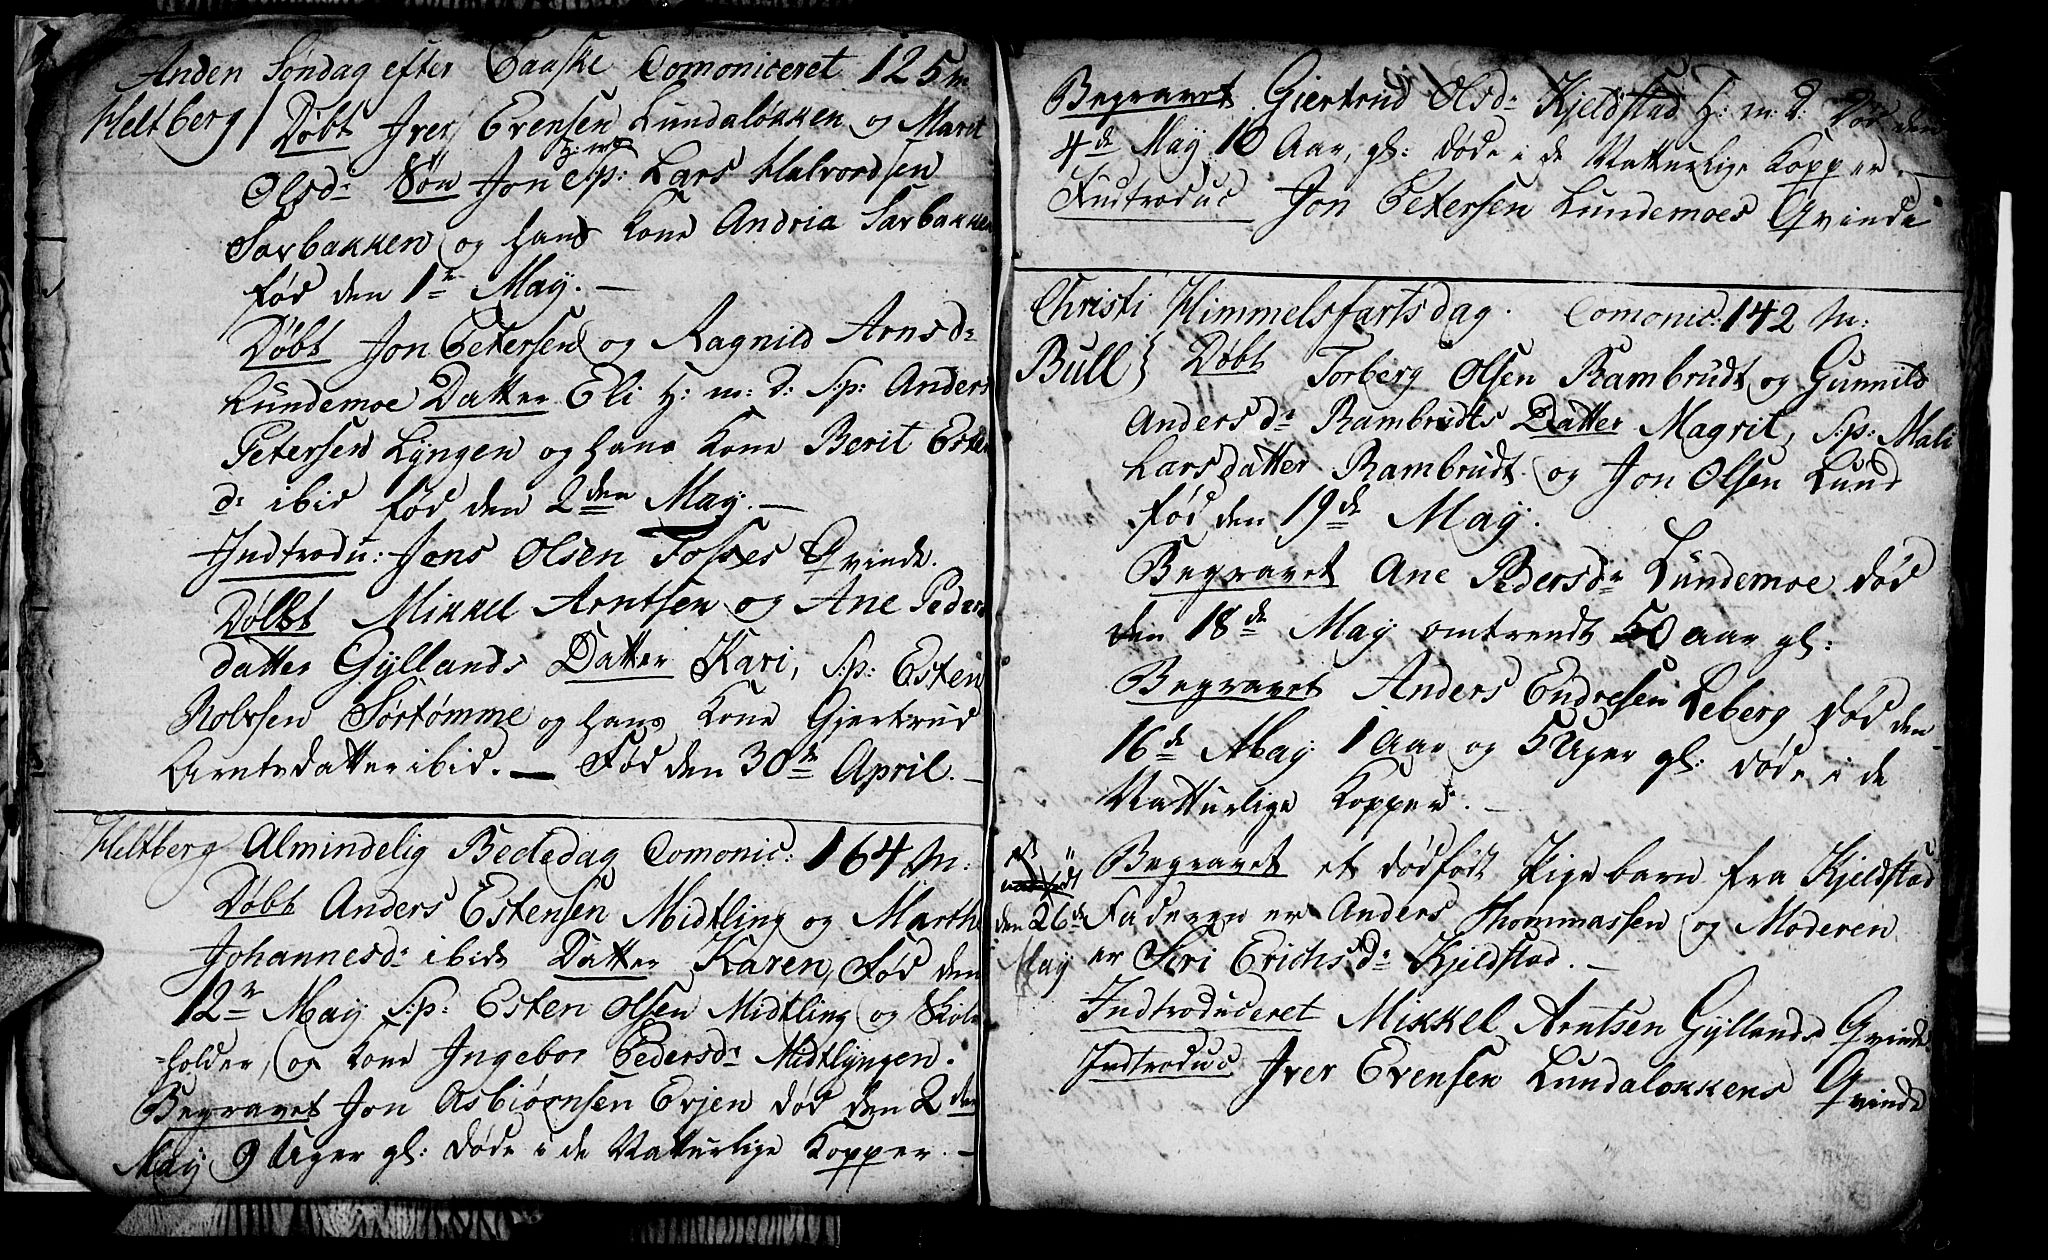 Anden Søndag efter Paaske Comoniceret 125 m
Heltberg Døbt Iver Evensen Lundaløkken og Marit
H: m d
Olsd: Søn Jon Sp: Lars Halvordsen
Sarbakken og hans Kone Andria Sarbakken
fød den 1te May. —
Døbt Jon Petersen og Ragnild Arnsd:
Lundemoe Datter Eli H: m: d: Sp: Anders
Petersen Lyngen og hans Kone Berit Esten
d: ibid fød den 2den May. —
Indtrodu: Jens Olsen Qvinde.
Døbt Mikkel Arntsen og Ane Peders
datter Gyllands Datter Kari, Sp: Esten
Sørtømme og hans Kone Gjertrud
Arntsdatter ibid. — Fød den 30de April. —
Heltberg Almindelig Bededag Comonic: 164 M:
Døbt Anders Estensen Midtling og Marthe
Johannesd: ibid Datter Karen, Fød den
12te May Sp: Esten Olsen Midtling og Skole
-holder, og Kone Ingebor Pedersd: Midtlyngen.
Begravet Jon Asbiørnsen Evjen død den 2den
May 9 Uger gl: døde i de Natturlige Kopper. —
Begravet Giertrud Olsd: Kjeldstad H: m: d: Død den
4de May 10 Aar gl: døde i de Natturlige Kopper. —
Indtroduc Jon Petersen Lundemoes Qvinde
Christi Himmelsfartsdag. Comonic: 142 M:
Bull } Døbt Torberg Olsen Rambrudt og Gunnild
Andersd: Rambrudts Datter Magrit, Sp: Mali
Larsdatter Rambrudt og Jon Olsen Lund
fød den 19de May.
Begravet Ane Pedersd: Lundemoe død
den 18de May omtrendt 50 aar gl:
Begravet Anders Endresen Leberg død den
16de May 1 Aar og 5 Uger gl: døde i de
Natturlige Kopper. —
Begravet et dødfødt Pige barn fra Kjeldstad
den 26de Faderen er Anders Thommassen og Moderen
May er Siri Erichsd: Kjeldstad. —
Indtroduceret Mikkel Arntsen Gyllands Qvinde
Indtroduc Iver Evensen Lundaløkkens Qvinde